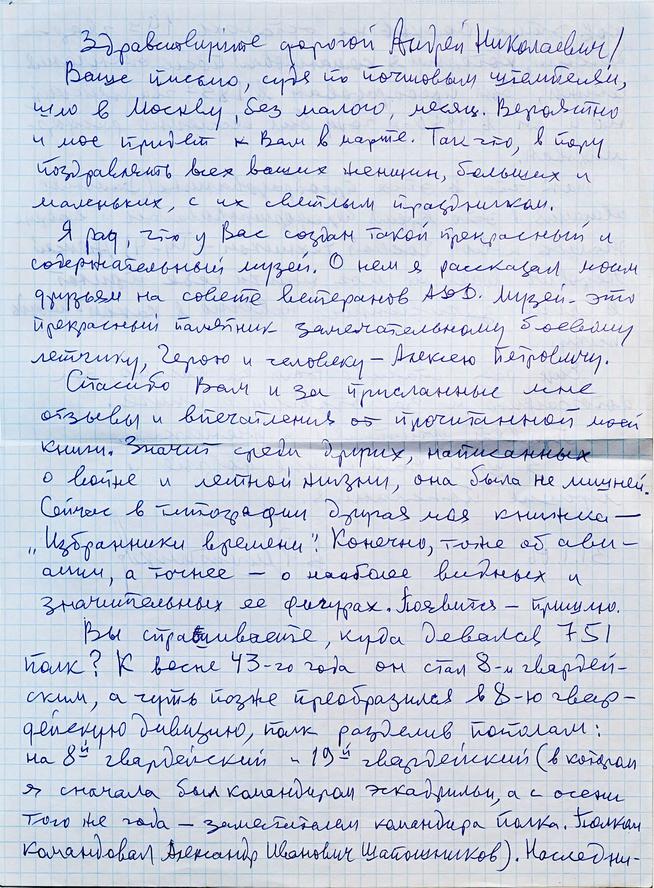 Здравствуйте дорогой Андрей Николаевич!
Ваше письмо, судя по почтовым штемпелям,
шло в Москву, без малого, месяц. Вероятно
и мое придет к Вам в марте. Так что, в пору
поздравлять всех ваших женщин, больших и
маленьких, с их светлым праздником.
Я рад, что у Вас создан такой прекрасный и
содержательный музей. О нем я рассказал моим
друзьям на совете ветеранов АДД. Музей - это
прекрасный памятник замечательному боевому
летчику, Герою и человеку - Алексею Петровичу.
Спасибо Вам и за присланные мне
отзывы и впечатления от прочитанной моей
книги. Значит среди других, написанных
о войне и летной жизни, она была не лишней.
Сейчас в типографии другая моя книжка —
„Избранники времени". Конечно, тоже об ави-
ации, а точнее - о наиболее видных и
значительных ее фигурах. Появится - пришлю.
Вы спрашиваете, куда девался 751
полк? К весне 43-го года он стал 8-м гвардей-
ским, а чуть позже преобразился в 8-ю гвар-
дейскую дивизию, полк разделив пополам:
на 8й гвардейский и 19й гвардейский (в котором
я сначала был командиром эскадрильи, а с осени
того же года - заместителем командира полка. Полком
командовал Александр Иванович Шапошников). Наследни-